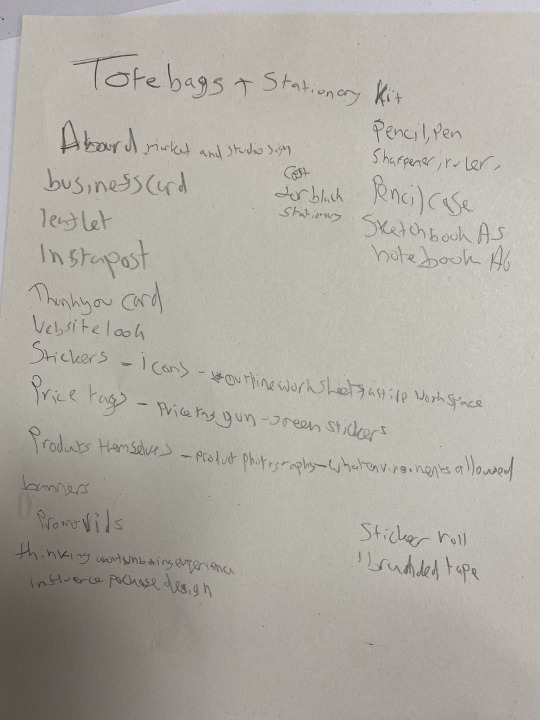 Totebags + Stationary Kit
Aboard, market and studio sign
business card
leaflet
Instapost
Thankyou card
Website look
Stickers - icons - outline worksheets
Price tags - price tag gun - green stickers
Produts themselves - product photography - what enviroments allowed
banners
Promo Vids
thinking about unboxing experience
influence package design
Cost
for black
stationary
Pencil, Pen
Sharpener, ruler,
Pencil Case
Sketchbook A5
notebook A6
Sticker roll
branded tape